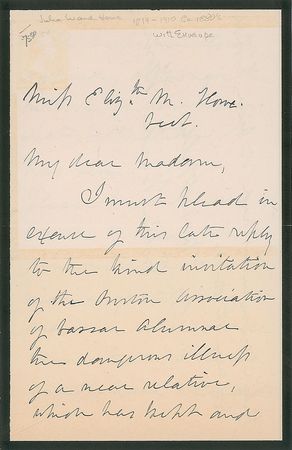 Julia Ward Howe 1819-1910 Ca 1880's
With Envelope
Miss Eliz.th M. Howe.
My dear Madam,
I must plead in
excuse of this late reply
to the kind invitation
of the Boston Association
of Vassar Alumnae
the dangerous illness
of a near relative,
which has kept and